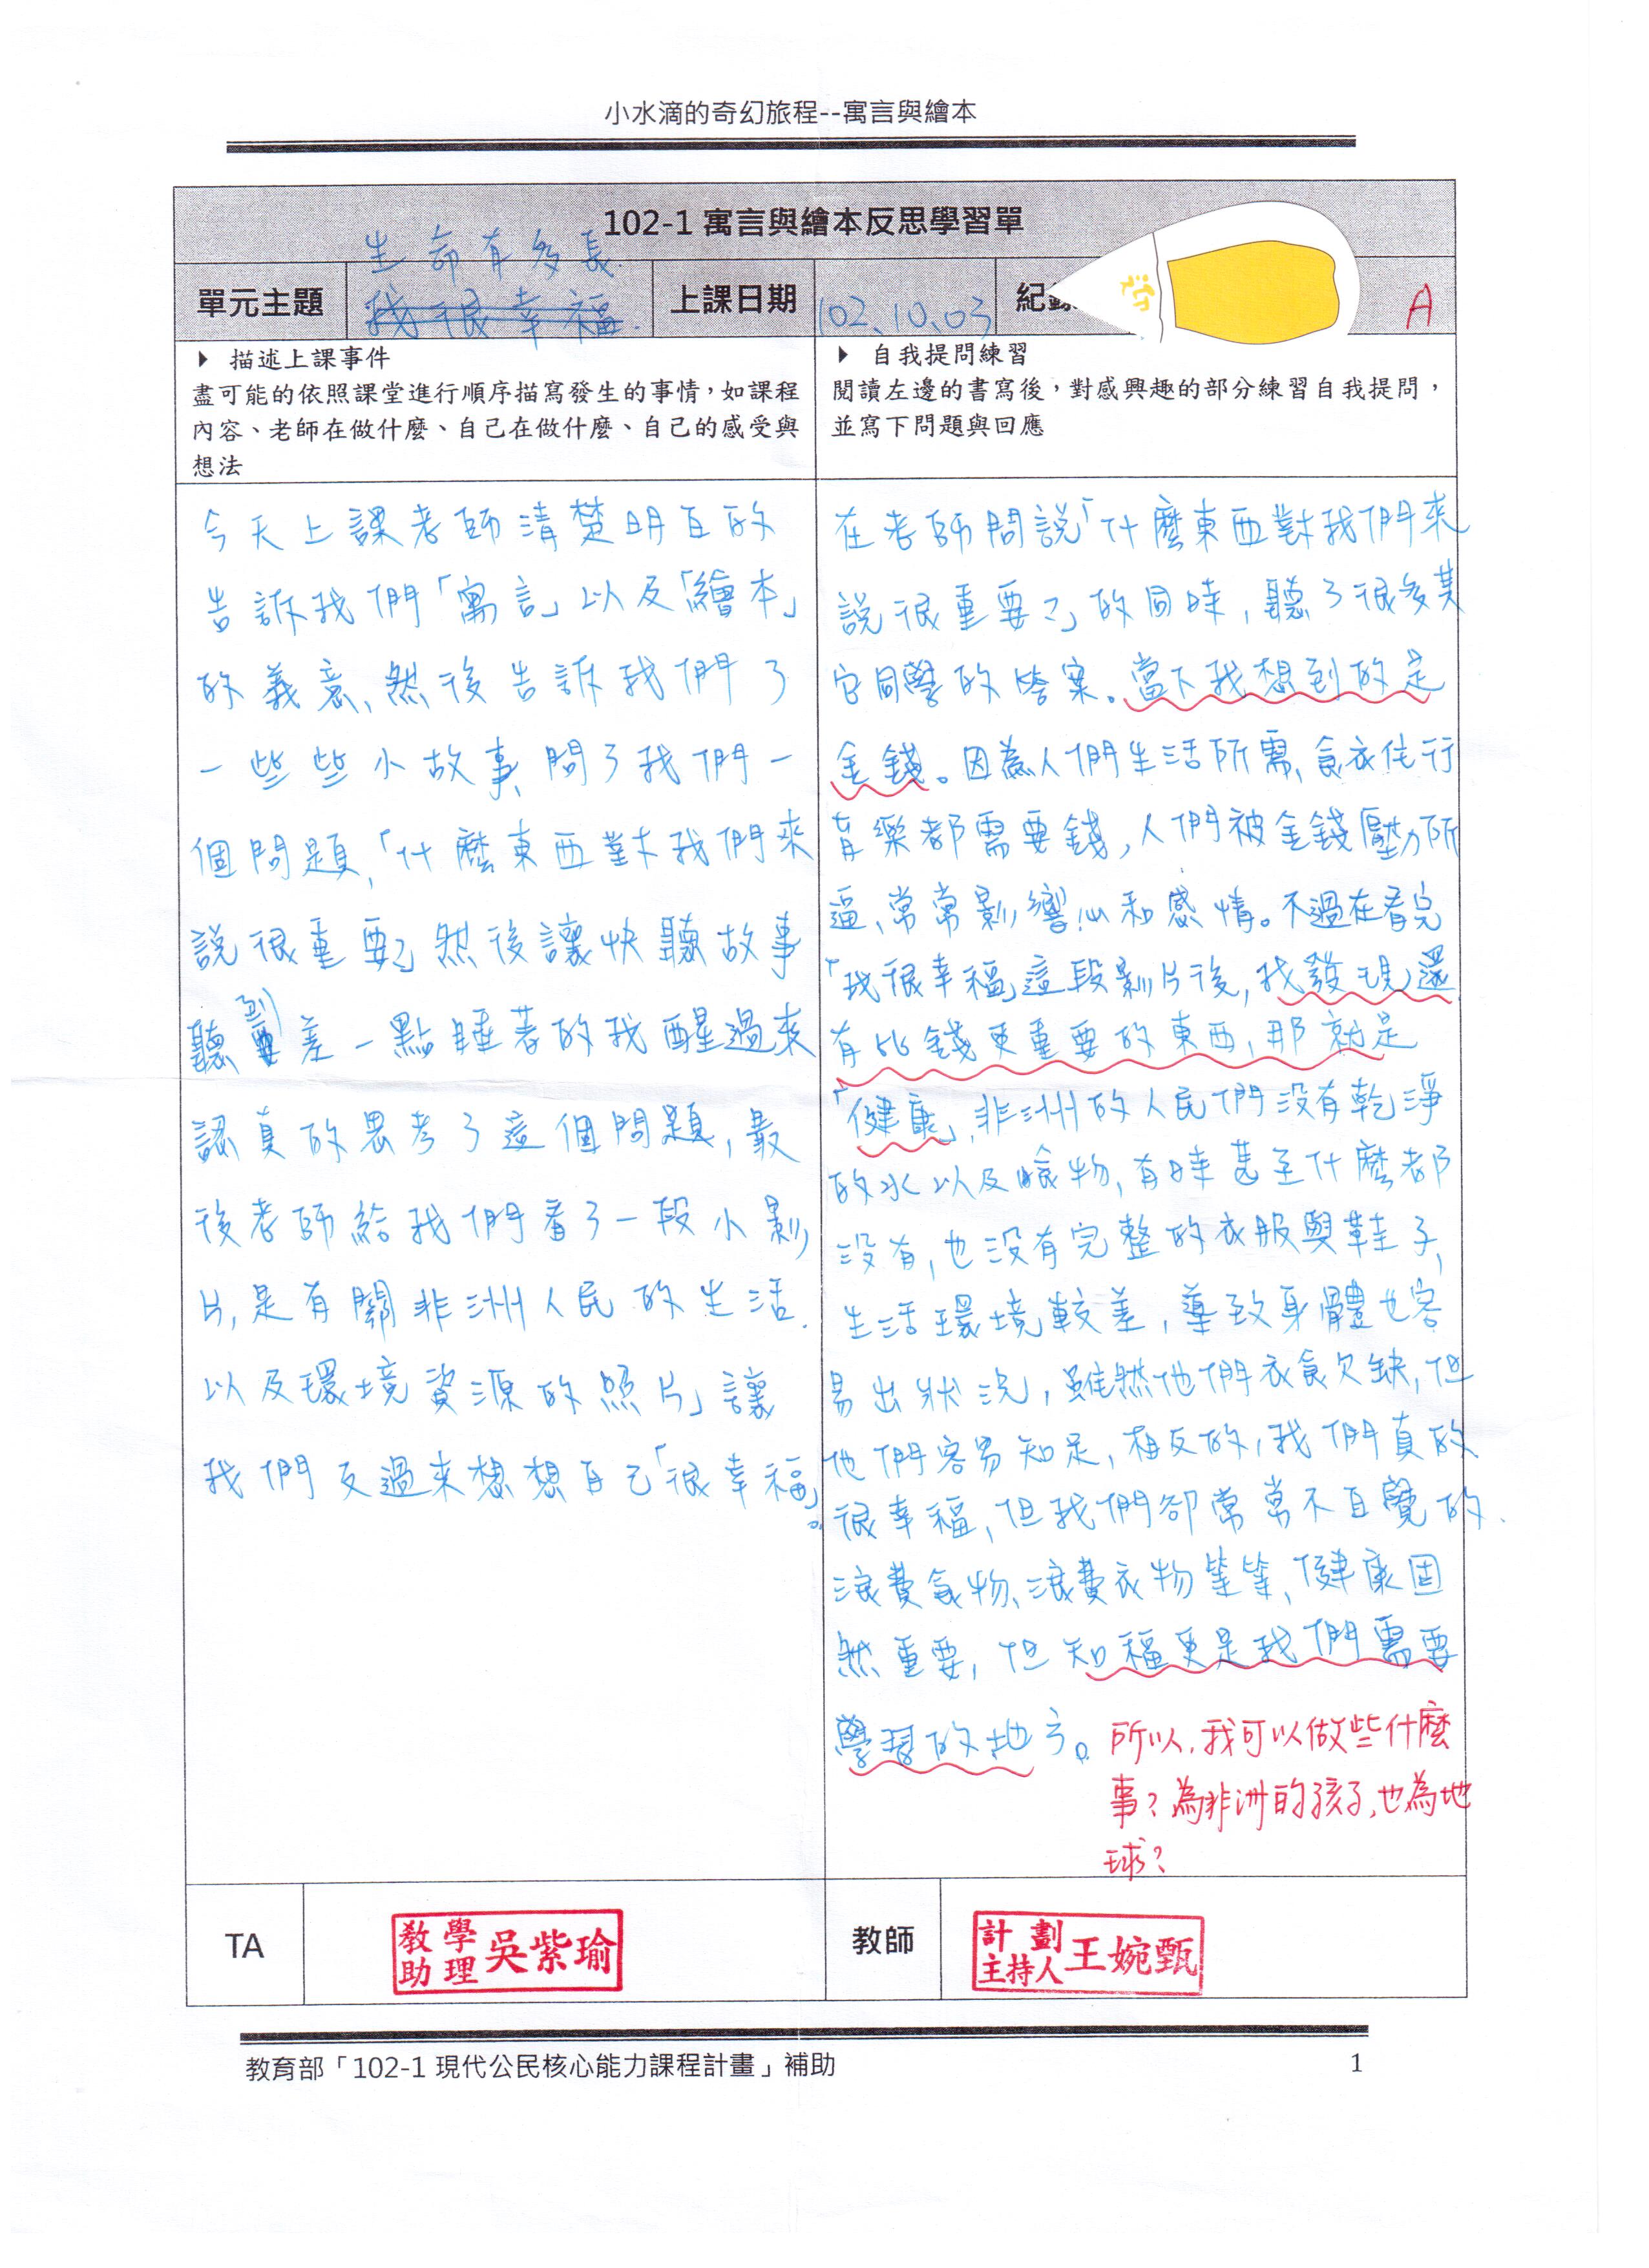 小水滴的奇幻旅程--寓言與繪本
102-1 寓言與繪本反思學習單
生命有多長.
單元主題
我很幸福.
上課日期
102.10.03
紀錄
A
描述上課事件
盡可能的依照課堂進行順序描寫發生的事情，如課程
內容、老師在做什麼、自己在做什麼、自己的感受與
想法
今天上課老師清楚明白的
告訴我們「寓言」以及「繪本」
的義意、然後告訴我們了
一些些小故事、問了我們一
個問題，「什麼東西對我們來
說很重要」然後讓快聽故事
聽到差一點睡著的我醒過來
認真的思考了這個問題，最
後老師給我們看了一段小影
片，是有關非洲人民的生活.
以及環境資源的照片」讓
我們反過來想想自己「很幸福」。
自我提問練習
閱讀左邊的書寫後，對感興趣的部分練習自我提問，
並寫下問題與回應
在老師問說「什麼東西對我們來
說很重要?」的同時，聽了很多其
它同學的答案。當下我想到的是
金錢。因為人們生活所需、食衣住行
育樂都需要錢，人們被金錢壓力所
逼、常常影響心和感情。不過在看完
「我很幸福」這段影片後，我發現還
有比錢更重要的東西，那就是
「健康」，非洲的人民們沒有乾淨
的水以及食物，有時甚至什麼都
沒有，也沒有完整的衣服與鞋子，
生活環境較差，導致身體也容
易出狀況，雖然他們衣食欠缺，但
他們容易知足，相反的，我們真的
很幸福，但我們卻常常不自覺的.
浪費食物、浪費衣物等等，健康固
然重要，但知福更是我們需要
學習的地方。
所以，我可以做些什麼
事？為非洲的孩子，也為地
球？
TA
教學助理 吳紫瑜
教師
計劃主持人 王婉甄
教育部「102-1 現代公民核心能力課程計畫」補助
1